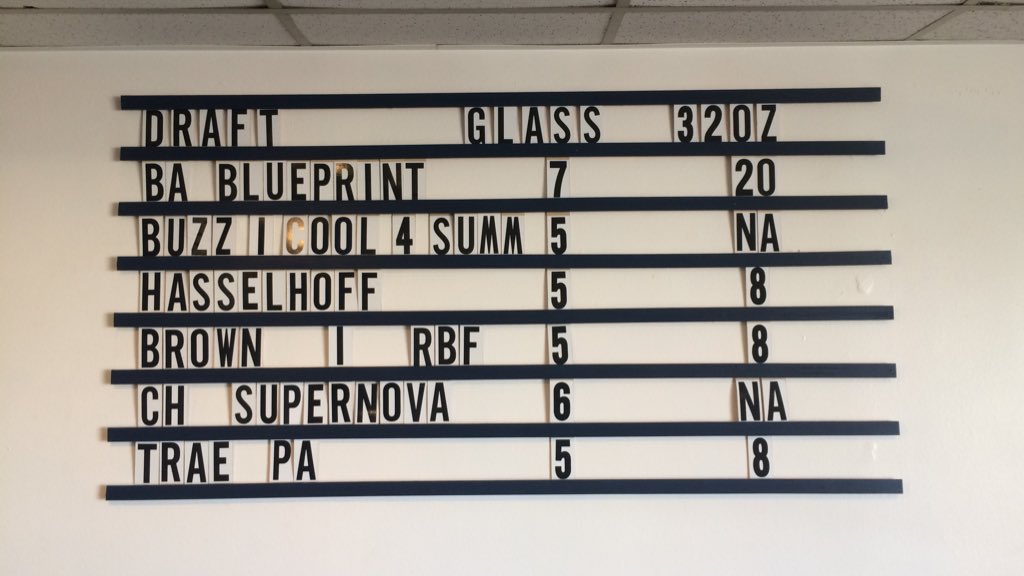 DRAFT GLASS 32OZ
BA BLUEPRINT 7 20
BUZZ I COOL 4 SUMM 5 NA
HASSELHOFF 5 8
BROWN I RBF 5 8
CH SUPERNOVA 6 NA
TRAE PA 5 8